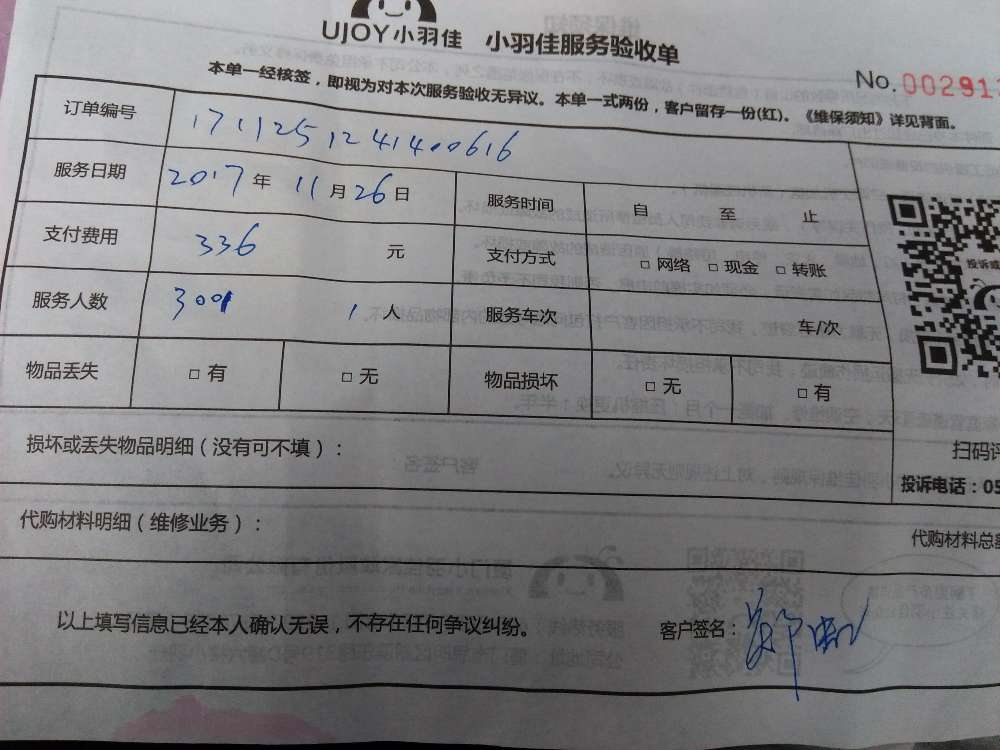 UJOY小羽佳 小羽佳服务验收单
No.002913
本单一经核签，即视为对本次服务验收无异议。本单一式两份，客户留存一份(红)。《维保须知》详见背面。
订单编号 171125124140616
服务日期 2017年 11月26日 服务时间 自 至 止
支付费用 336 元 支付方式 □ 网络 □ 现金 □ 转账
服务人数 1 人 服务车次 车/次
物品丢失 □ 有 □ 无 物品损坏 □ 无 □ 有
投诉或
损坏或丢失物品明细（没有可不填）：
扫码评
投诉电话：05
代购材料明细（维修业务）：
代购材料总额
以上填写信息已经本人确认无误，不存在任何争议纠纷。 客户签名：